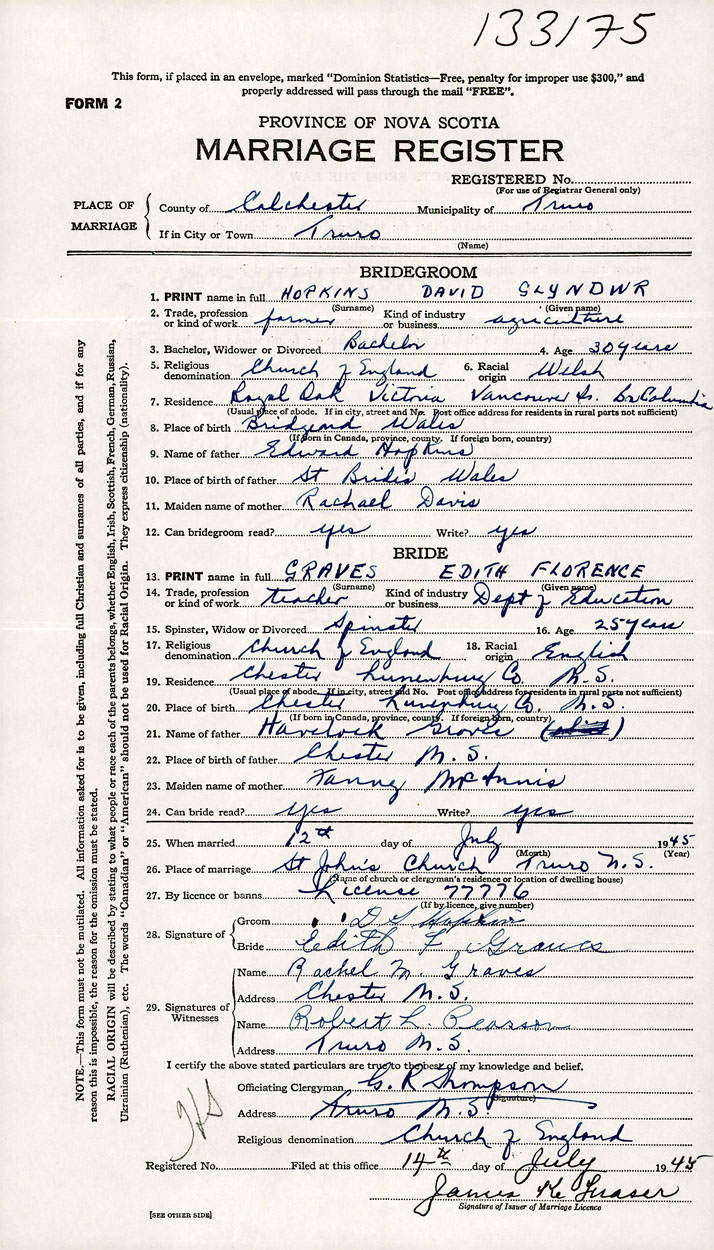 133175
This form, if placed in an envelope, marked "Dominion Statistics—Free, penalty for improper use $300," and
properly addressed will pass through the mail "FREE".
FORM 2
PROVINCE OF NOVA SCOTIA
MARRIAGE REGISTER
REGISTERED No.
(For use of Registrar General only)
PLACE OF MARRIAGE
County of Colchester Municipality of Truro
If in City or Town Truro
(Name)
BRIDEGROOM
1. PRINT name in full HOPKINS DAVID GLYNDWR
(Surname) (Given name)
2. Trade, profession or kind of work farmer Kind of industry or business agriculture
3. Bachelor, Widower or Divorced Bachelor 4. Age 30 years
5. Religious denomination Church of England 6. Racial origin Welsh
7. Residence Royal Oak Victoria Vancouver Is. Br. Columbia
(Usual place of abode. If in city, street and No. Post office address for residents in rural parts not sufficient)
8. Place of birth Bridgend Wales
(If born in Canada, province, county. If foreign born, country)
9. Name of father Edward Hopkins
10. Place of birth of father St Brides Wales
11. Maiden name of mother Rachael Davis
12. Can bridegroom read? yes Write? yes
BRIDE
13. PRINT name in full GRAVES EDITH FLORENCE
(Surname) (Given name)
14. Trade, profession or kind of work teacher Kind of industry or business Dept of Education
15. Spinster, Widow or Divorced Spinster 16. Age 25 years
17. Religious denomination Church of England 18. Racial origin English
19. Residence Chester Lunenburg Co. N.S.
(Usual place of abode. If in city, street and No. Post office address for residents in rural parts not sufficient)
20. Place of birth Chester Lunenburg Co. N.S.
(If born in Canada, province, county. If foreign born, country)
21. Name of father Havelock Graves
22. Place of birth of father Chester N.S.
23. Maiden name of mother Fanny McInnis
24. Can bride read? yes Write? yes
25. When married 12th day of July 1945
(Month) (Year)
26. Place of marriage St John's Church Truro N.S.
(Name of church or clergyman's residence or location of dwelling house)
27. By licence or banns License 77776
(If by licence, give number)
28. Signature of
Groom D G Hopkins
Bride Edith F. Graves
29. Signatures of Witnesses
Name Rachel M. Graves
Address Chester N.S.
Name Robert L. Pearson
Address Truro N.S.
I certify the above stated particulars are true to the best of my knowledge and belief.
Officiating Clergyman G. R Thompson
(Signature)
Address Truro N.S
Religious denomination Church of England
Registered No. Filed at this office 14th day of July 1945
James K Fraser
Signature of Issuer of Marriage Licence
[SEE OTHER SIDE]
NOTE.—This form must not be mutilated. All information asked for is to be given, including full Christian and surnames of all parties, and if for any
reason this is impossible, the reason for the omission must be stated.
RACIAL ORIGIN will be described by stating to what people or race each of the parents belongs, whether English, Irish, Scottish, French, German, Russian,
Ukrainian (Ruthenian), etc. The words "Canadian" or "American" should not be used for Racial Origin. They express citizenship (nationality).